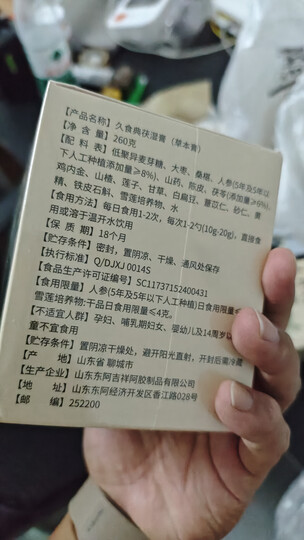 【产品名称】久食典茯湿膏（草本膏）
【净 含 量】260克
【配 料 表】低聚异麦芽糖、大枣、桑椹、人参(5年及5年以
下人工种植添加量≥8%)、山药、陈皮、茯苓(添加量≥6%)、
鸡内金、山楂、莲子、甘草、白扁豆、薏苡仁、砂仁、黄
精、铁皮石斛、雪莲培养物、水
【食用方法】每日食用1-2次，每次1-2勺(10g-20g)，直接食
用或溶于温开水饮用
【保 质 期】18个月
【贮存条件】密封，置阴凉、干燥、通风处保存
【执行标准】Q/DJXJ 0014S
【食品生产许可证编号】SC11737152400431
【食用限量】人参(5年及5年以下人工种植)日食用限量
雪莲培养物:干品日食用限量≤4克。
【不适宜人群】孕妇、哺乳期妇女、婴幼儿及14周岁以
童不宜食用
【贮存条件】置阴凉干燥处，避开阳光直射，开封后需冷藏
【产 地】山东省 聊城市
【生产企业】山东东阿吉祥阿胶制品有限公司
【地 址】山东东阿经济开发区香江路028号
【邮 编】252200